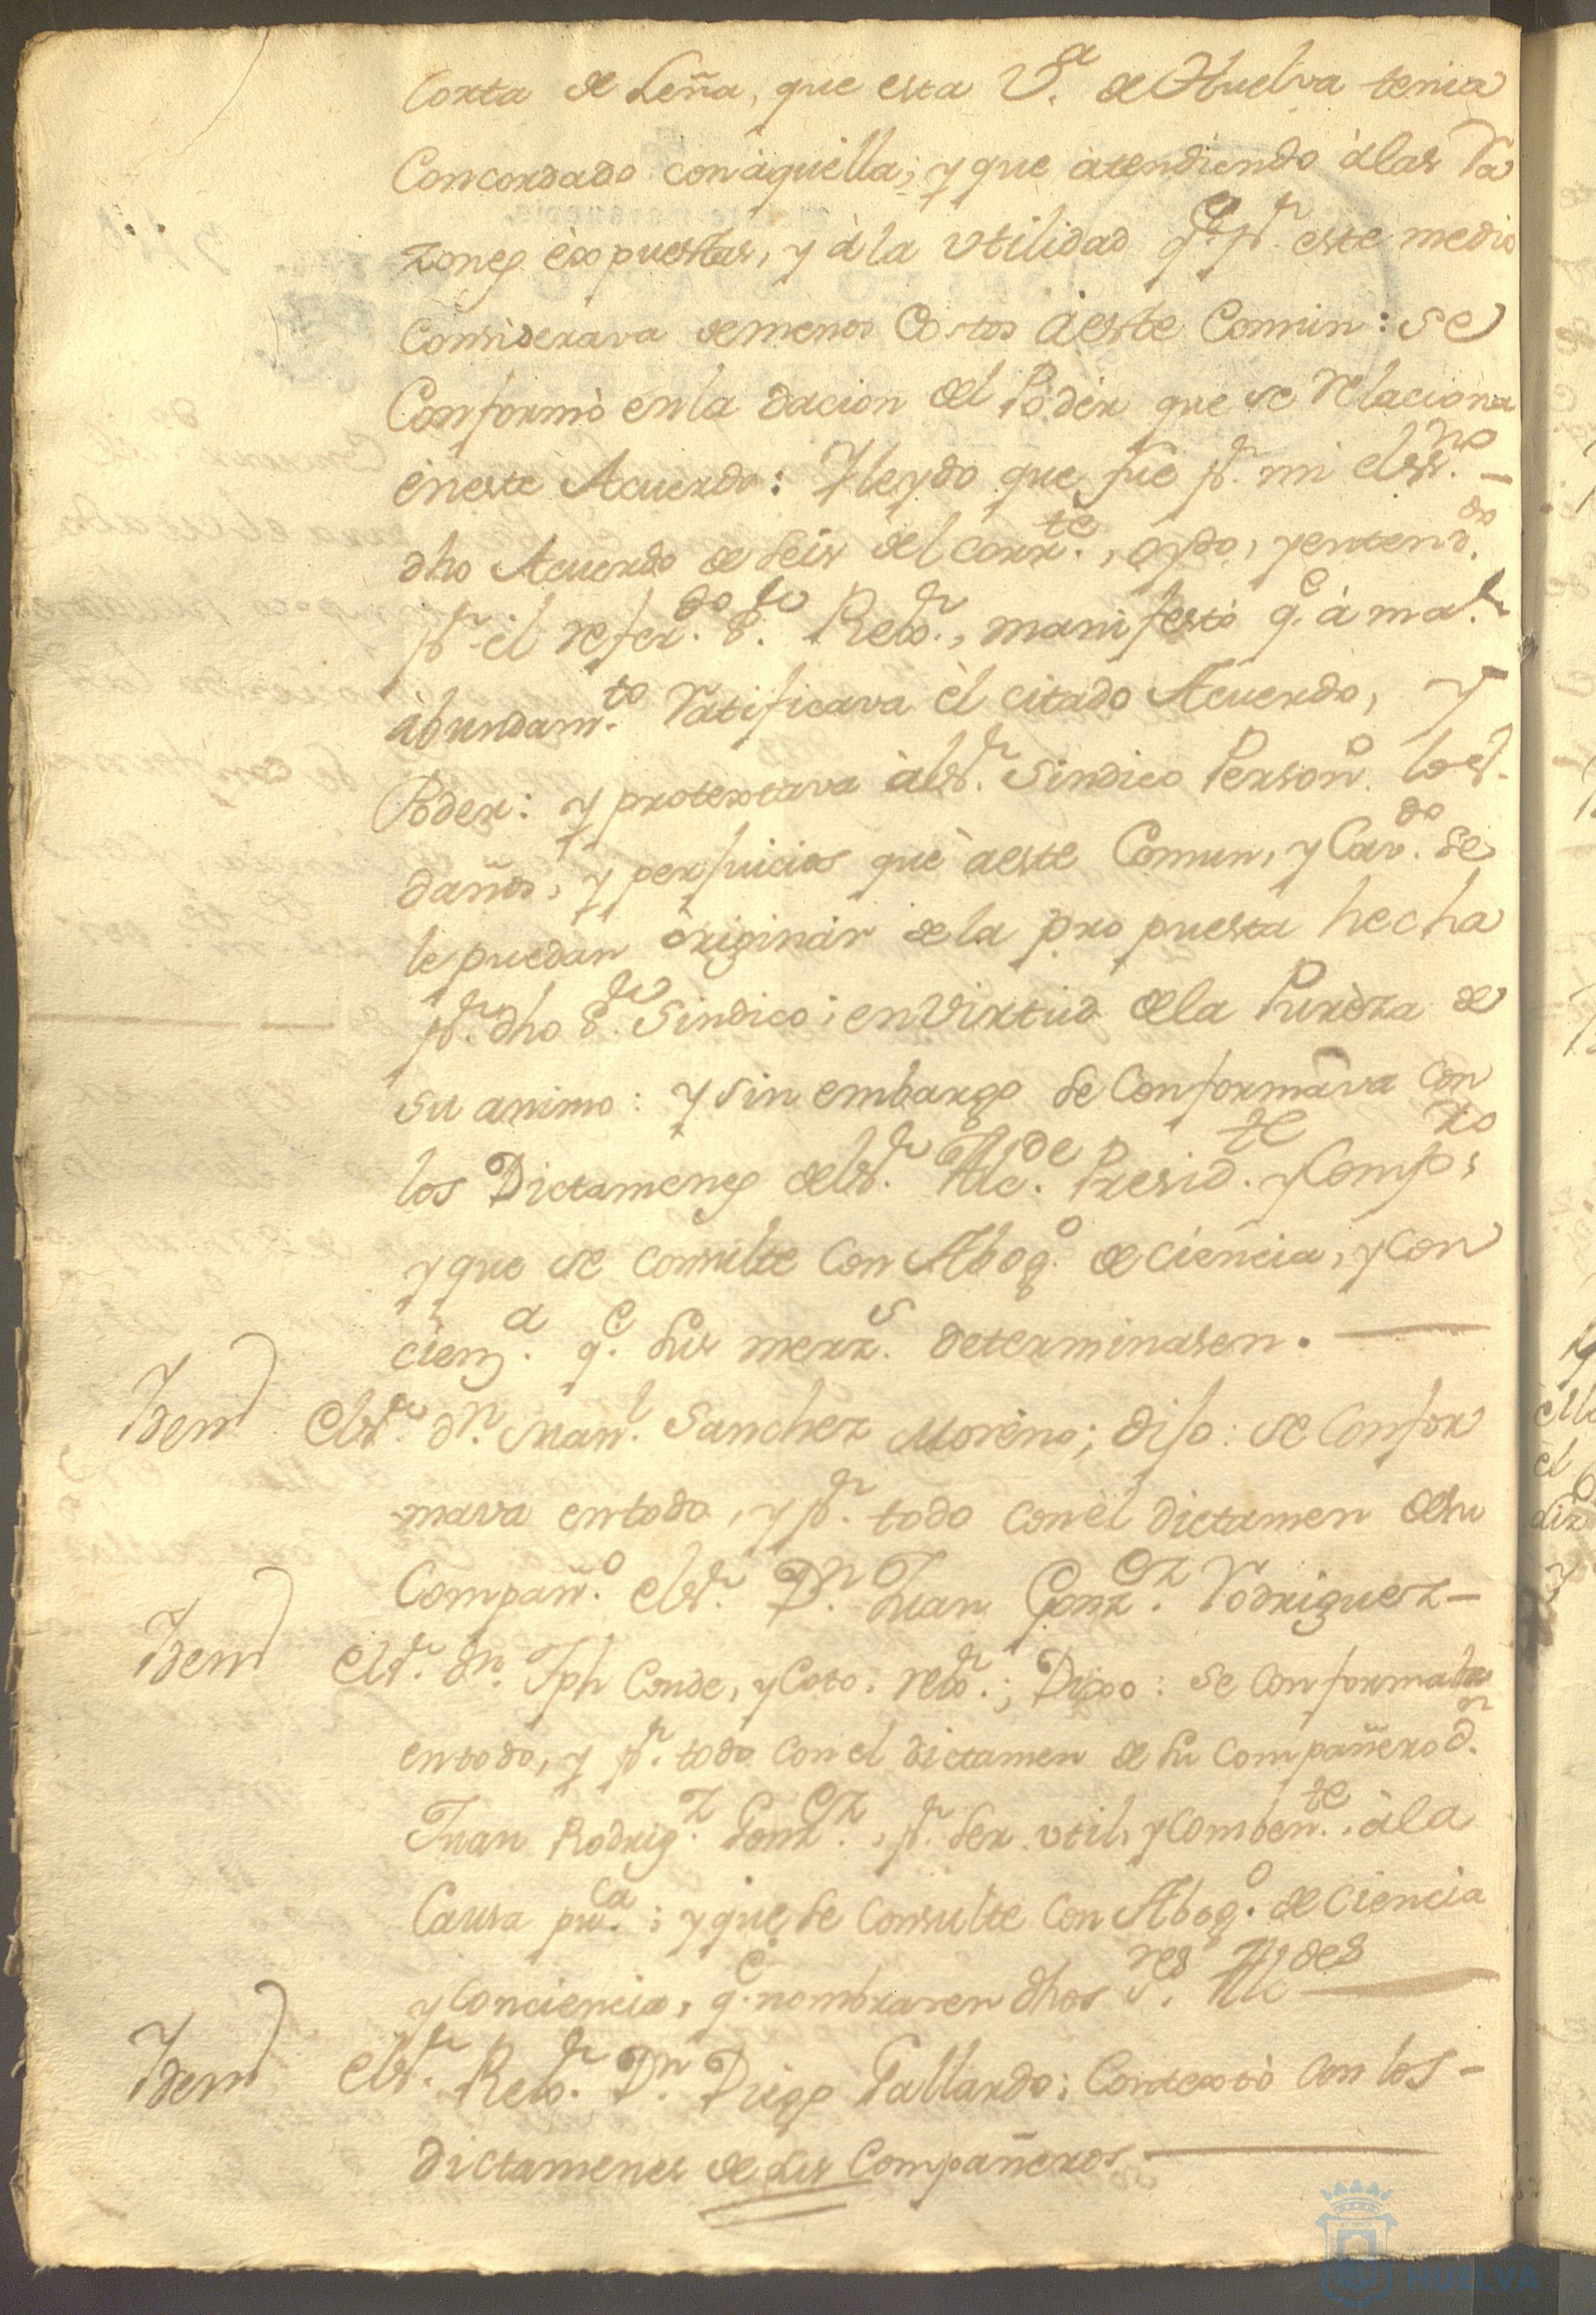 Corta de Leña, que esta V.ª de Huelva tenia
Concordado con àquella; y que àtendiendo à las Ra
zones èxpuestas, y à la Utilidad q.e p.r este medio
Considerava de menos Costos à este Comun: se
Conformò en la dacion del Poder que se relaciona
èn este Acuerdo: Y leydo que fue p.r mi el ess.no –
dho Acuerdo de seis del corr.te, oydo, y entend.do
p.r èl refer.do S.or Rex.r, manifestò q.e à ma.r
àbundam.to Ratificava èl citado Acuerdo, y
Poder: y protextava àl S.r Sindico Person.o los
daños, y perjuicios que à este Comun, y Cav.do se
le puedan òriginàr de la propuesta hecha
p.r dho S.or Sindico; en Virtud de la Purèza de
su animo: y sin embargo se Conformava con
los Dictamenes del S.r Alc.de Presid.te y Comp.ro;
y que se consulte con Abog.o de ciencia, y con
cienz.a q.e sus merz.s determinasen. —
Idem El S.or d.n Man.l Sanchez Moreno; dijo: se Confor
mava en todo, y p.r todo con èl dictamen de su
Compañ.o el S.r D.n Juan Gonz.ez Rodriguez –
Idem El S.r d.n Jph Conde, y Coto, rex.r; Dixo: se Conformaba
en todo, y p.r todo con el dictamen de su compañero d.n
Juan Rodrig.z Gonz.ez, p.r ser util, y Comben.te, à la
Causa pu.ca; y que se Consulte con Abog.o de Ciencia
y Conciencia, q.e nombraren dhos S.res Alc.des —
Idem El S.r Rex.r D.n Diego Gallardo; Contextò con los –
dictamenes de sus Compañeros —
HUELVA